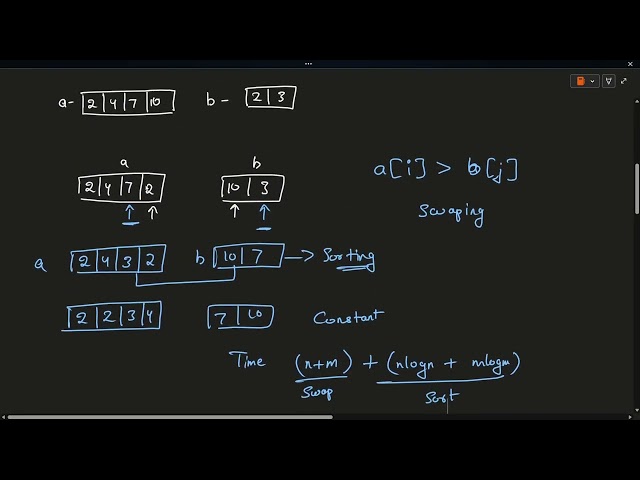 a- 2 4 7 10 b - 2 3
a b
2 4 7 2 10 3 a[i] > b[j]
Swaping
a 2 4 3 2 b 10 7 —> Sorting
2 2 3 4 7 10 Constant
Time (n+m) + (nlogn + mlogm)
Swap Sort